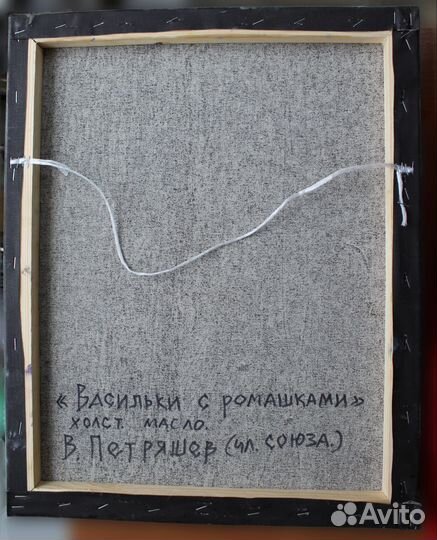 «Васильки с ромашками»
холст. масло.
В. Петряшев (чл. союза.)
Avito